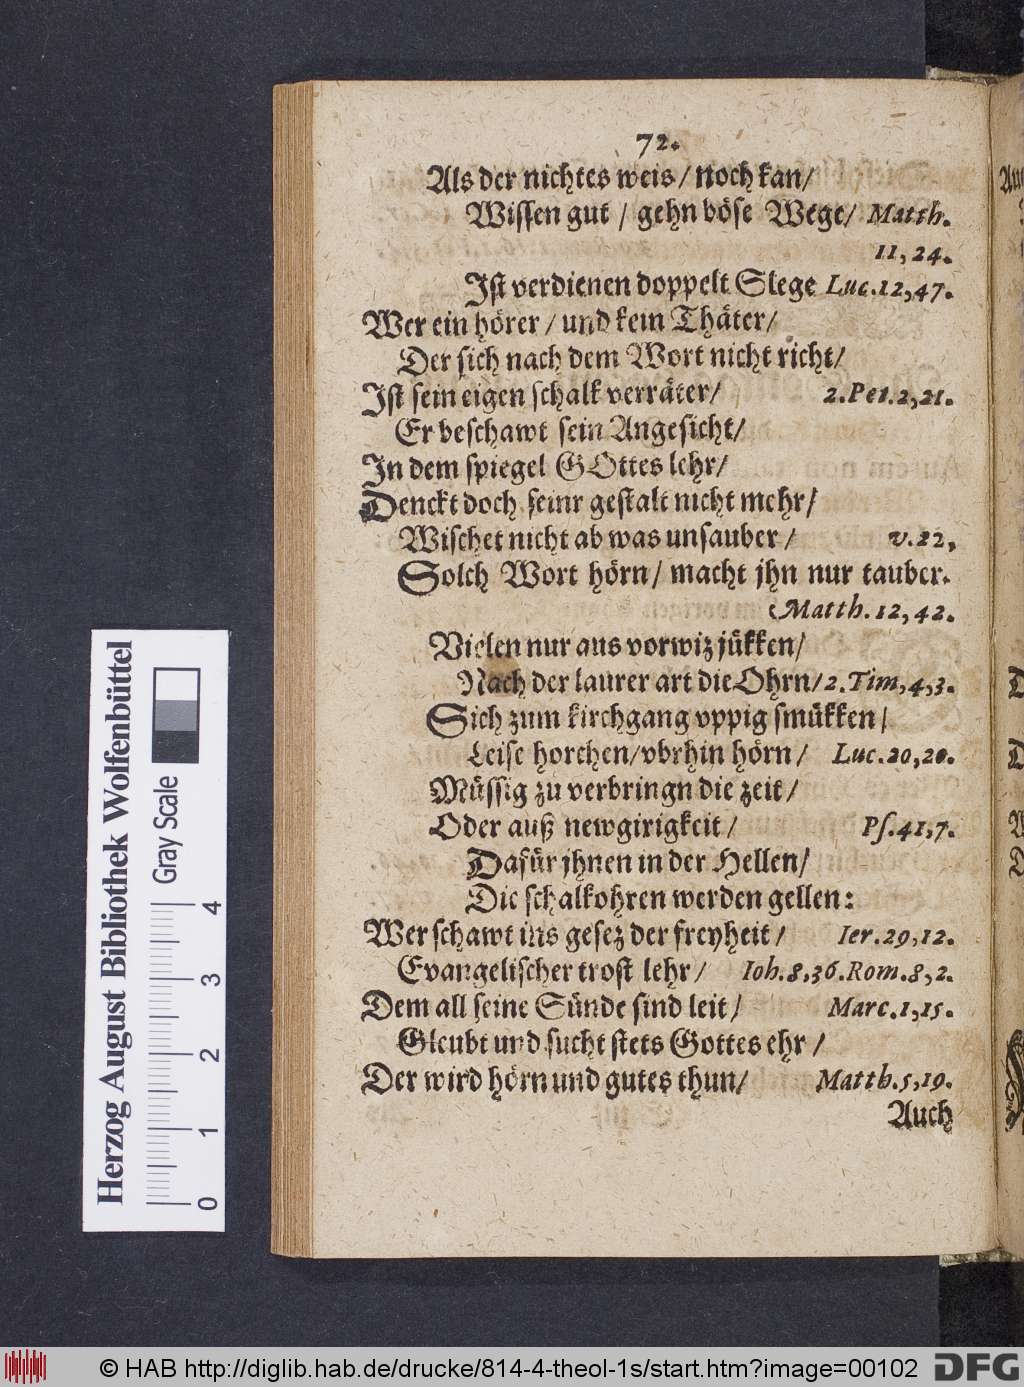 72.
Als der nichtes weis / noch kan/
Wissen gut / gehn böse Wege/ Matth.
11,24.
Ist verdienen doppelt Slege Luc.12,47.
Wer ein hörer / und kein Thäter/
Der sich nach dem Wort nicht richt/
Ist sein eigen schalk verräter/ 2.Pet.2,21.
Er beschawt sein Angesicht/
In dem spiegel GOttes lehr/
Denckt doch seinr gestalt nicht mehr/
Wischet nicht ab was unsauber / v.22,
Solch Wort hörn/ macht jhn nur tauber.
Matth.12,42.
Vielen nur aus vorwiz jükken/
Nach der laurer art die Ohrn/2.Tim,4,3.
Sich zum kirchgang vppig smükken/
Leise horchen/vbrhin hörn / Luc.20,20.
Müssig zu verbringn die zeit/
Oder auß newgirigkeit / Ps.41,7.
Dafür jhnen in der Hellen/
Die schalkohren werden gellen:
Wer schawt ins gesez der freyheit / Ier.29,12.
Evangelischer trost lehr / Ioh.8,36.Rom.8,2.
Dem all seine Sünde sind leit/ Marc.1,15.
Gleubt und sucht stets Gottes ehr /
Der wird hörn und gutes thun/ Matth.5,19.
Auch
Herzog August Bibliothek Wolfenbüttel
Gray Scale
0 1 2 3 4
© HAB http://diglib.hab.de/drucke/814-4-theol-1s/start.htm?image=00102
DFG